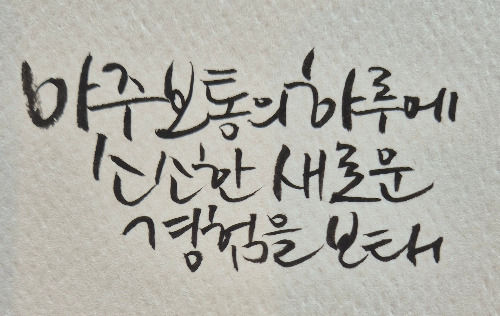 아주 보통의 하루에
신선한 새로운
경험을 보태